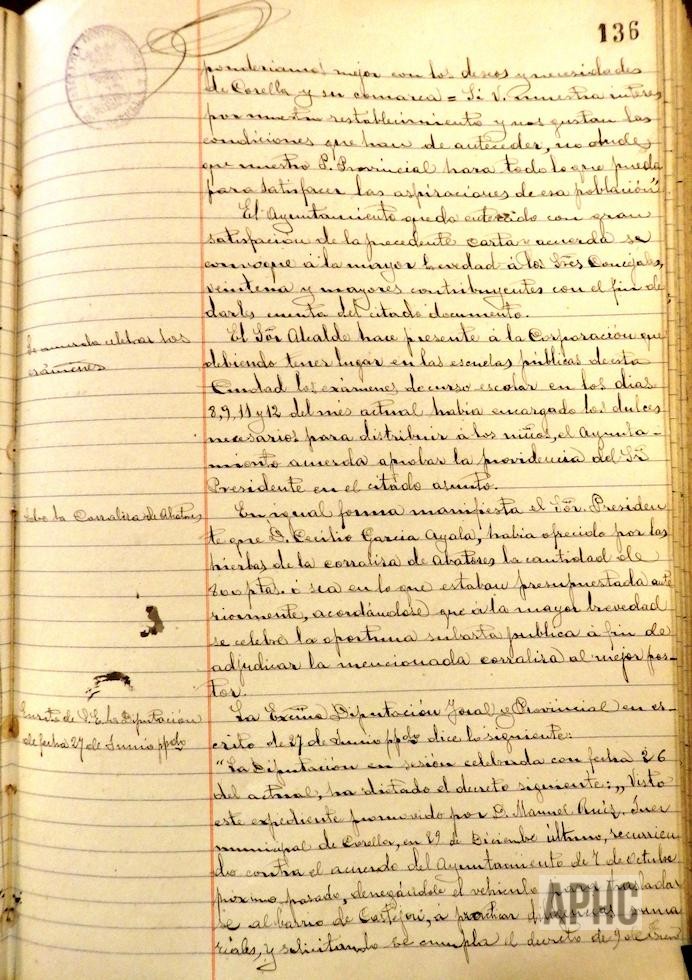 136
ponderiamos mejor con los deseos y necesidades
de Corella y su comarca = Si V. muestra interes
por nuestro restablecimiento y nos gustan las
condiciones que han de anteceder, no dude,
que nuestro P. Provincial hara todo lo que pueda
para satisfacer las aspiraciones de esa población"
El Ayuntamiento queda enterado con gran
satisfacion de la precedente carta y acuerda se
convoque á la mayor brevedad á los Sres Concejales,
veintena y mayores contribuyentes con el fin de
darles cuenta del citado documento.
Se acuerda celebrar los
exámenes
El Sor Alcalde hace presente á la Corporación que
debiendo tener lugar en las escuelas públicas de esta
Ciudad los exámenes de curso escolar en los dias
8, 9, 11 y 12 del mes actual habia encargado los dulces
necesarios para distribuir á los niños, el Ayunta-
miento acuerda aprobar la providencia del Sr
Presidente en el citado asunto.
Sobre la Corraliza de Abatores
En igual forma manifiesta el Sor. Presiden
te que D. Cecilio Garcia Ayala, habia ofrecido por las
hierbas de la corraliza de Abatores la cantidad de
800 ptas. ó sea en lo que estaban presupuestada ante
riormente, acordándose que á la mayor brevedad
se celebre la oportuna subasta publica á fin de
adjudicar la mencionada corraliza al mejor pos-
tor.
Escrito de S. E. la Diputación
de fecha 27 de Junio ppdo
La Excma Diputación Foral y Provincial en es-
crito de 27 de Junio ppdo dice lo siguiente:
"La Diputación en sesión celebrada con fecha 26
del actual, ha dictado el decreto siguiente: „ Visto
este expediente promovido por D. Manuel Ruiz, Juez
municipal de Corella, en 29 de Diciembre último, recurrien
do contra el acuerdo del Ayuntamiento de 7 de Octubre
próximo pasado, denegándole el vehiculo para trasladar
se al barrio de Castejón, á practicar diligencias suma
riales, y solicitando se cumpla el decreto de 9 de
APHC